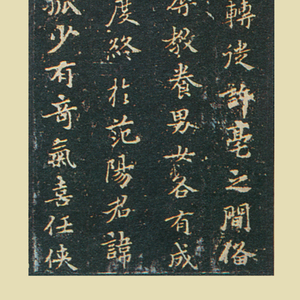 轉徙許亳之間備
教養男女各有成
度終於范陽君諱
孤少有奇氣喜任俠